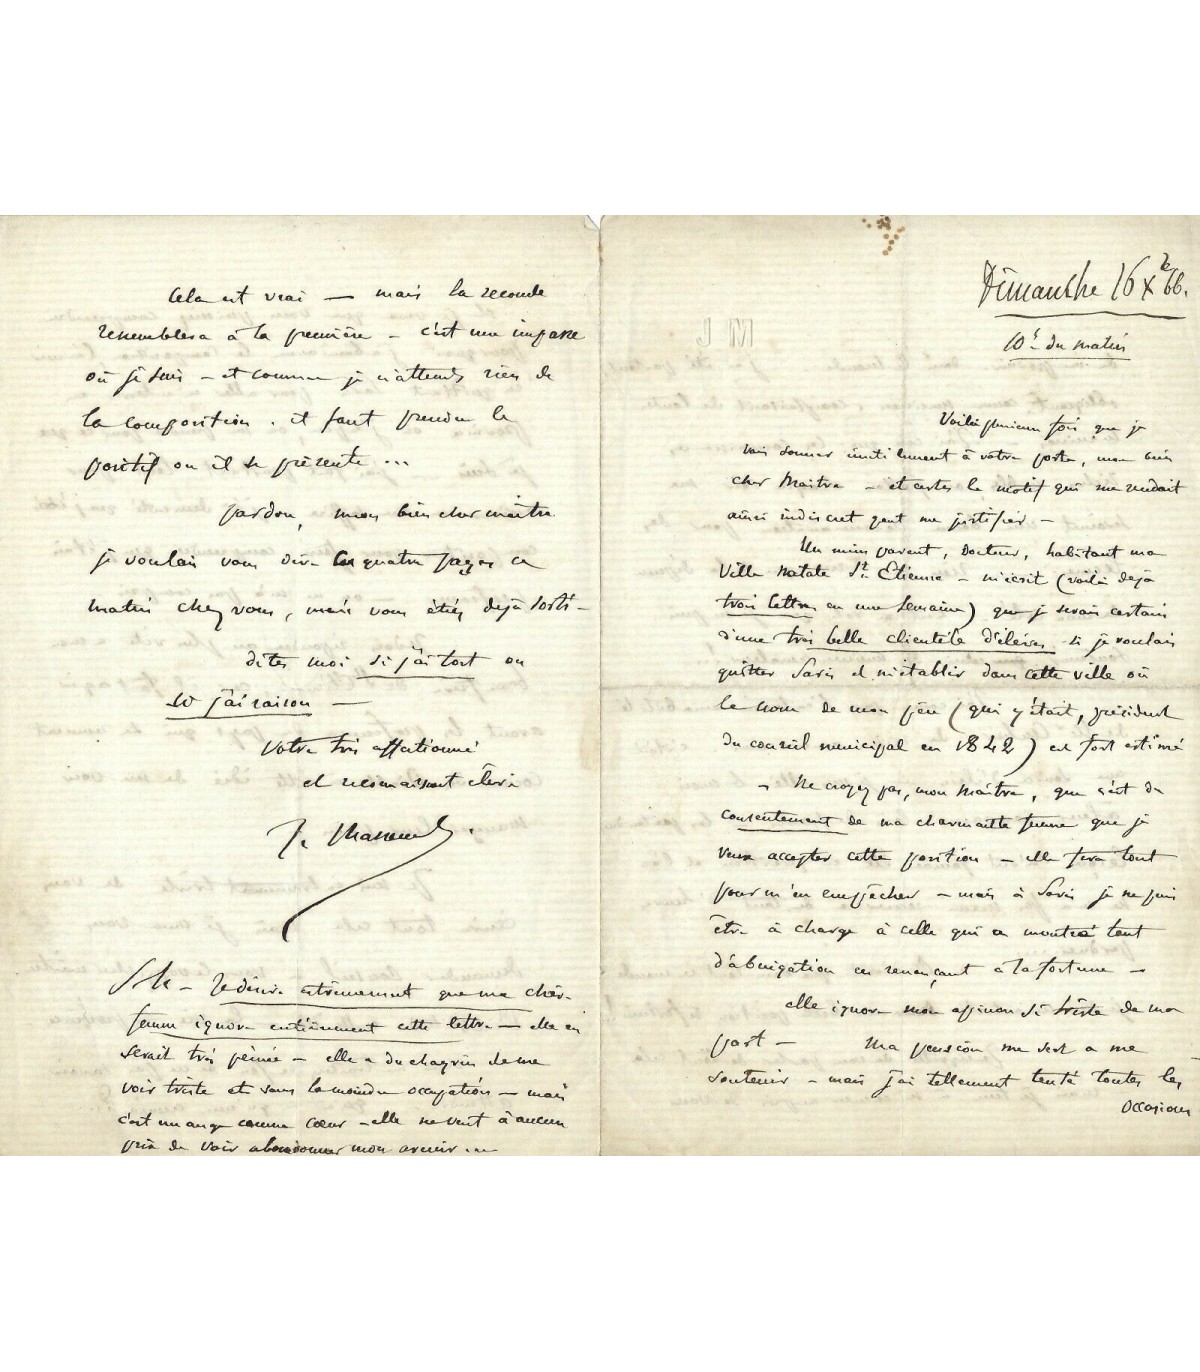 Dimanche 16 Xbre 66.
10h du matin
JM
Voilà plusieurs fois que je
vais sonner inutilement à votre porte, mon bien
cher Maître – et certes le motif qui me rendait
aussi indiscret peut me justifier –
Un mien parent, Docteur, habitant ma
Ville natale St. Etienne – m'écrit (voilà déjà
trois lettres en une Semaine) que je serais certain
d'une très belle clientèle d'élèves si je voulais
quitter Paris et m'établir dans cette ville où
le nom de mon père (qui y était, président
du conseil municipal en 1842) est fort estimé
– Ne croyez pas, mon Maître, que c'est du
consentement de ma charmante femme que je
veux accepter cette position – elle fera tout
pour m'en empêcher – mais à Paris je ne puis
être à charge à celle qui a montré tant
d'abnégation en renonçant à la fortune –
elle ignore mon opinion si triste de ma
part – Ma pension me sert a me
soutenir – mais j'ai tellement tenté toutes les
occasions
Cela est vrai – mais la seconde
ressemblera à la première – c'est une impasse
où je suis – et comme je n'attends rien de
la composition. il faut prendre le
positif ou il se présente ...
pardon, mon bien cher maître
je voulais vous dire les quatre pages ce
matin chez vous, mais vous étiez déjà sorti –
dites moi si j'ai tort ou
si j'ai raison –
Votre très affectionné
et reconnaissant élève
J. Massenet.
– Je désire extrêmement que ma chère
femme ignore entièrement cette lettre – elle en
serait très peinée – elle a du chagrin de me
voir triste et sans la moindre occupation – mais
c'est un ange comme cœur – elle ne veut à aucun
prix de voir abandonner mon avenir ...